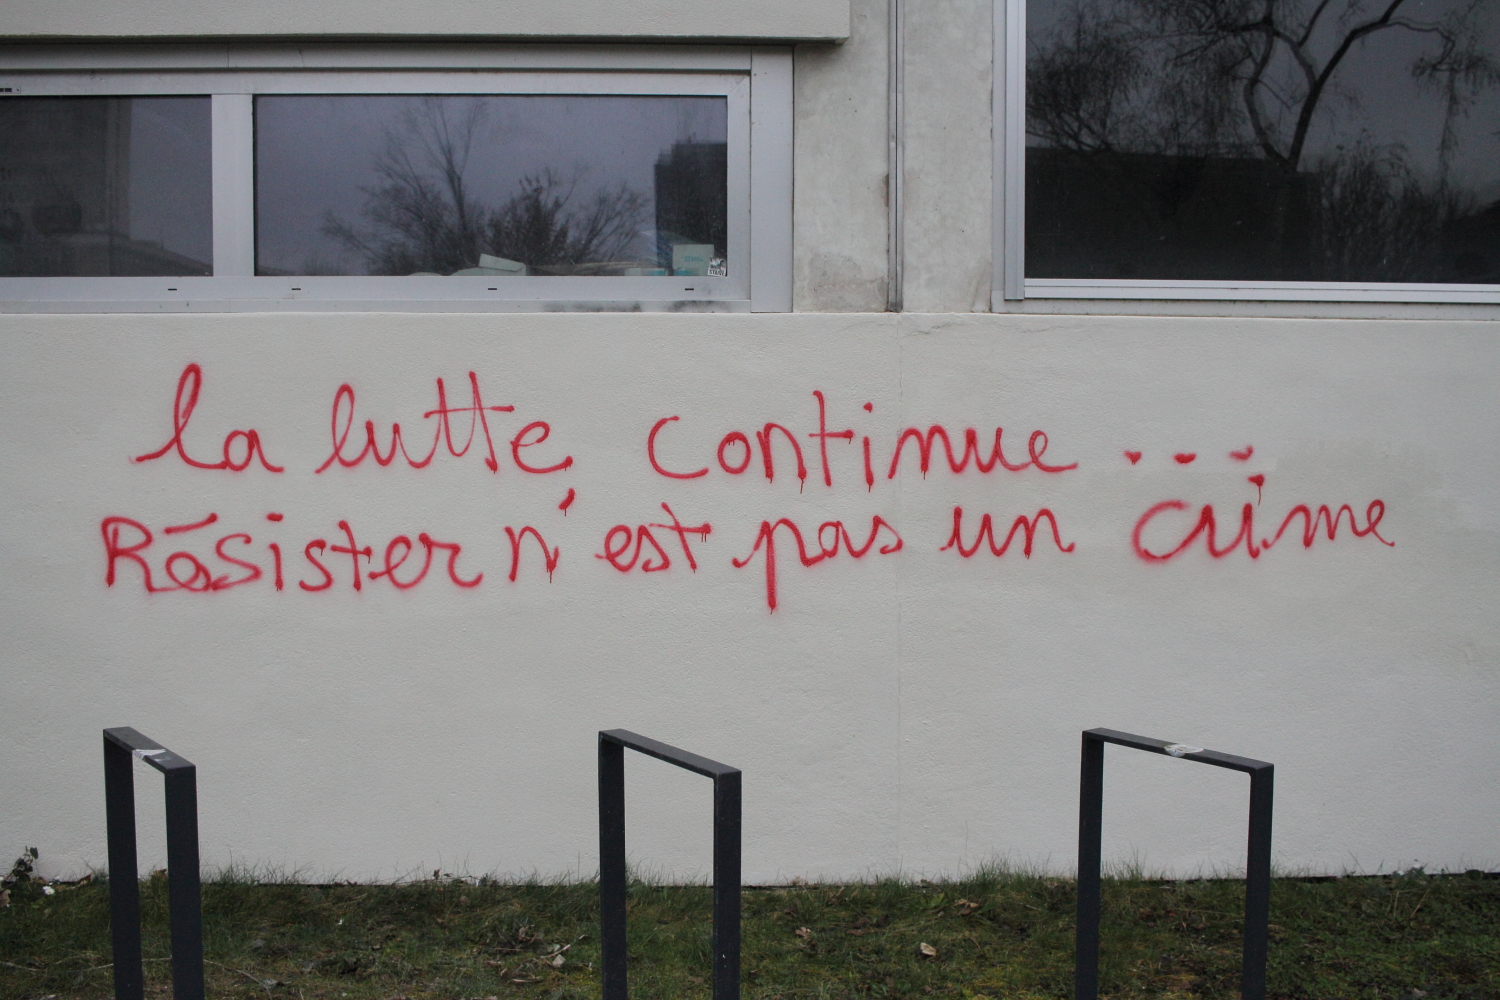 la lutte continue...
Résister n'est pas un crime